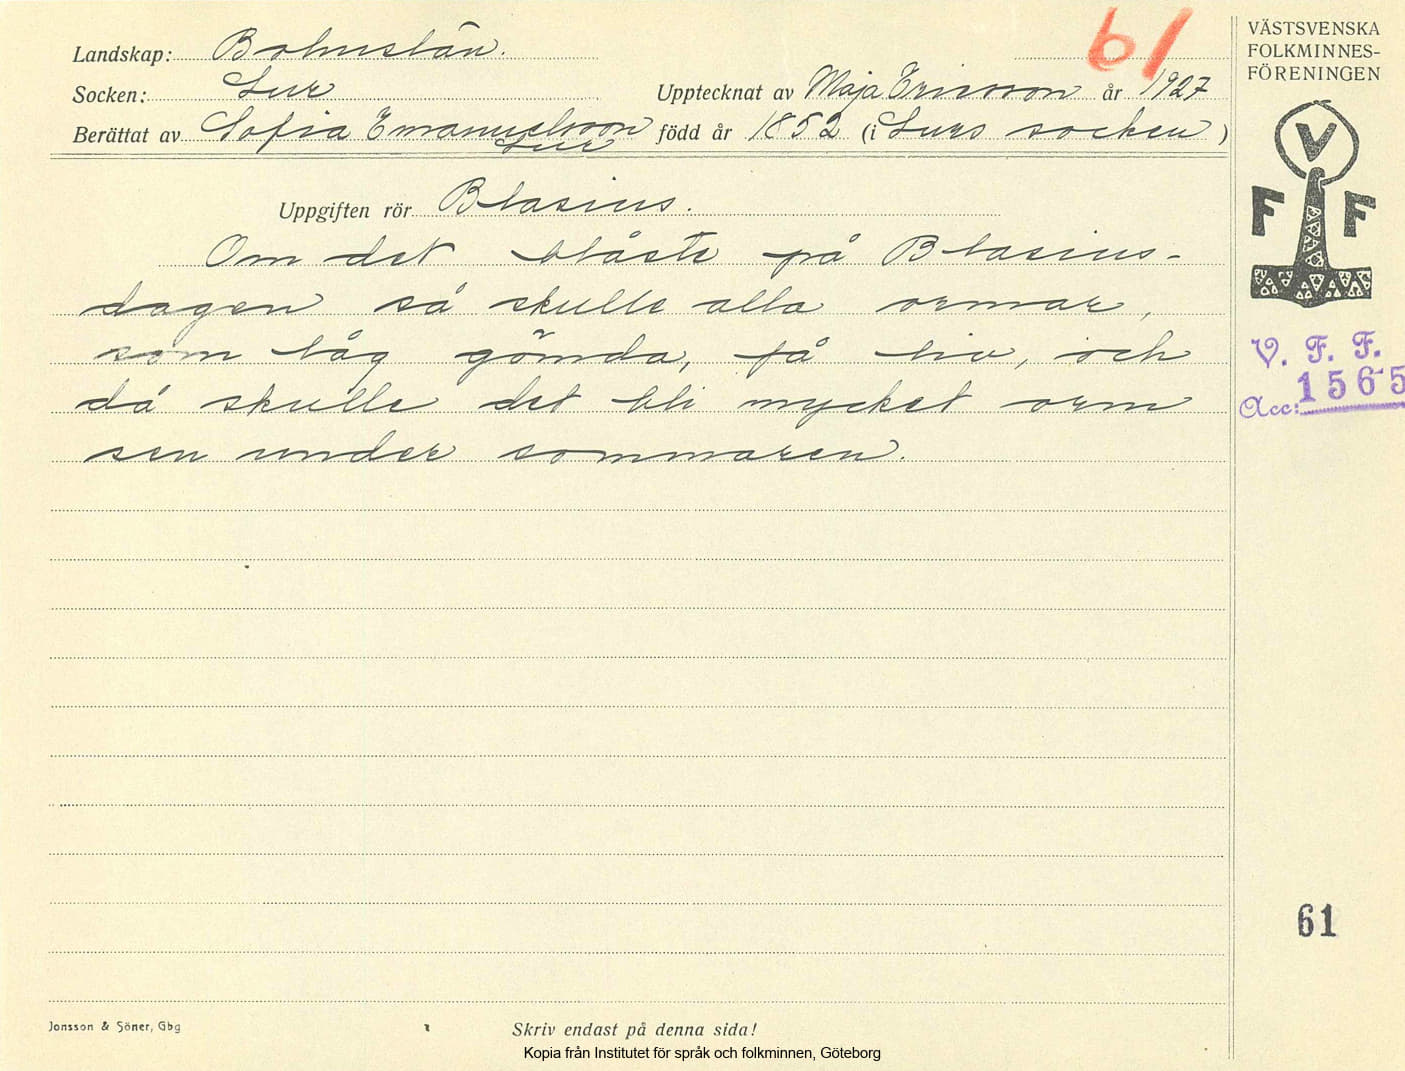 Landskap: Bohuslän.
61
Socken: Lur
Upptecknat av Maja Ericsson år 1927
Berättat av Sofia Emanuelsson född år 1852 (i Lurs socken)
Lur
Uppgiften rör Blasius.
Om det blåste på Blasius-
dagen så skulle alla ormar,
som låg gömda, få liv, och
då skulle det bli mycket orm
sen under sommaren.
VÄSTSVENSKA
FOLKMINNES-
FÖRENINGEN
V
F F
V. F. F.
Acc: 1565
61
Jonsson & Söner, Gbg
Skriv endast på denna sida!
Kopia från Institutet för språk och folkminnen, Göteborg